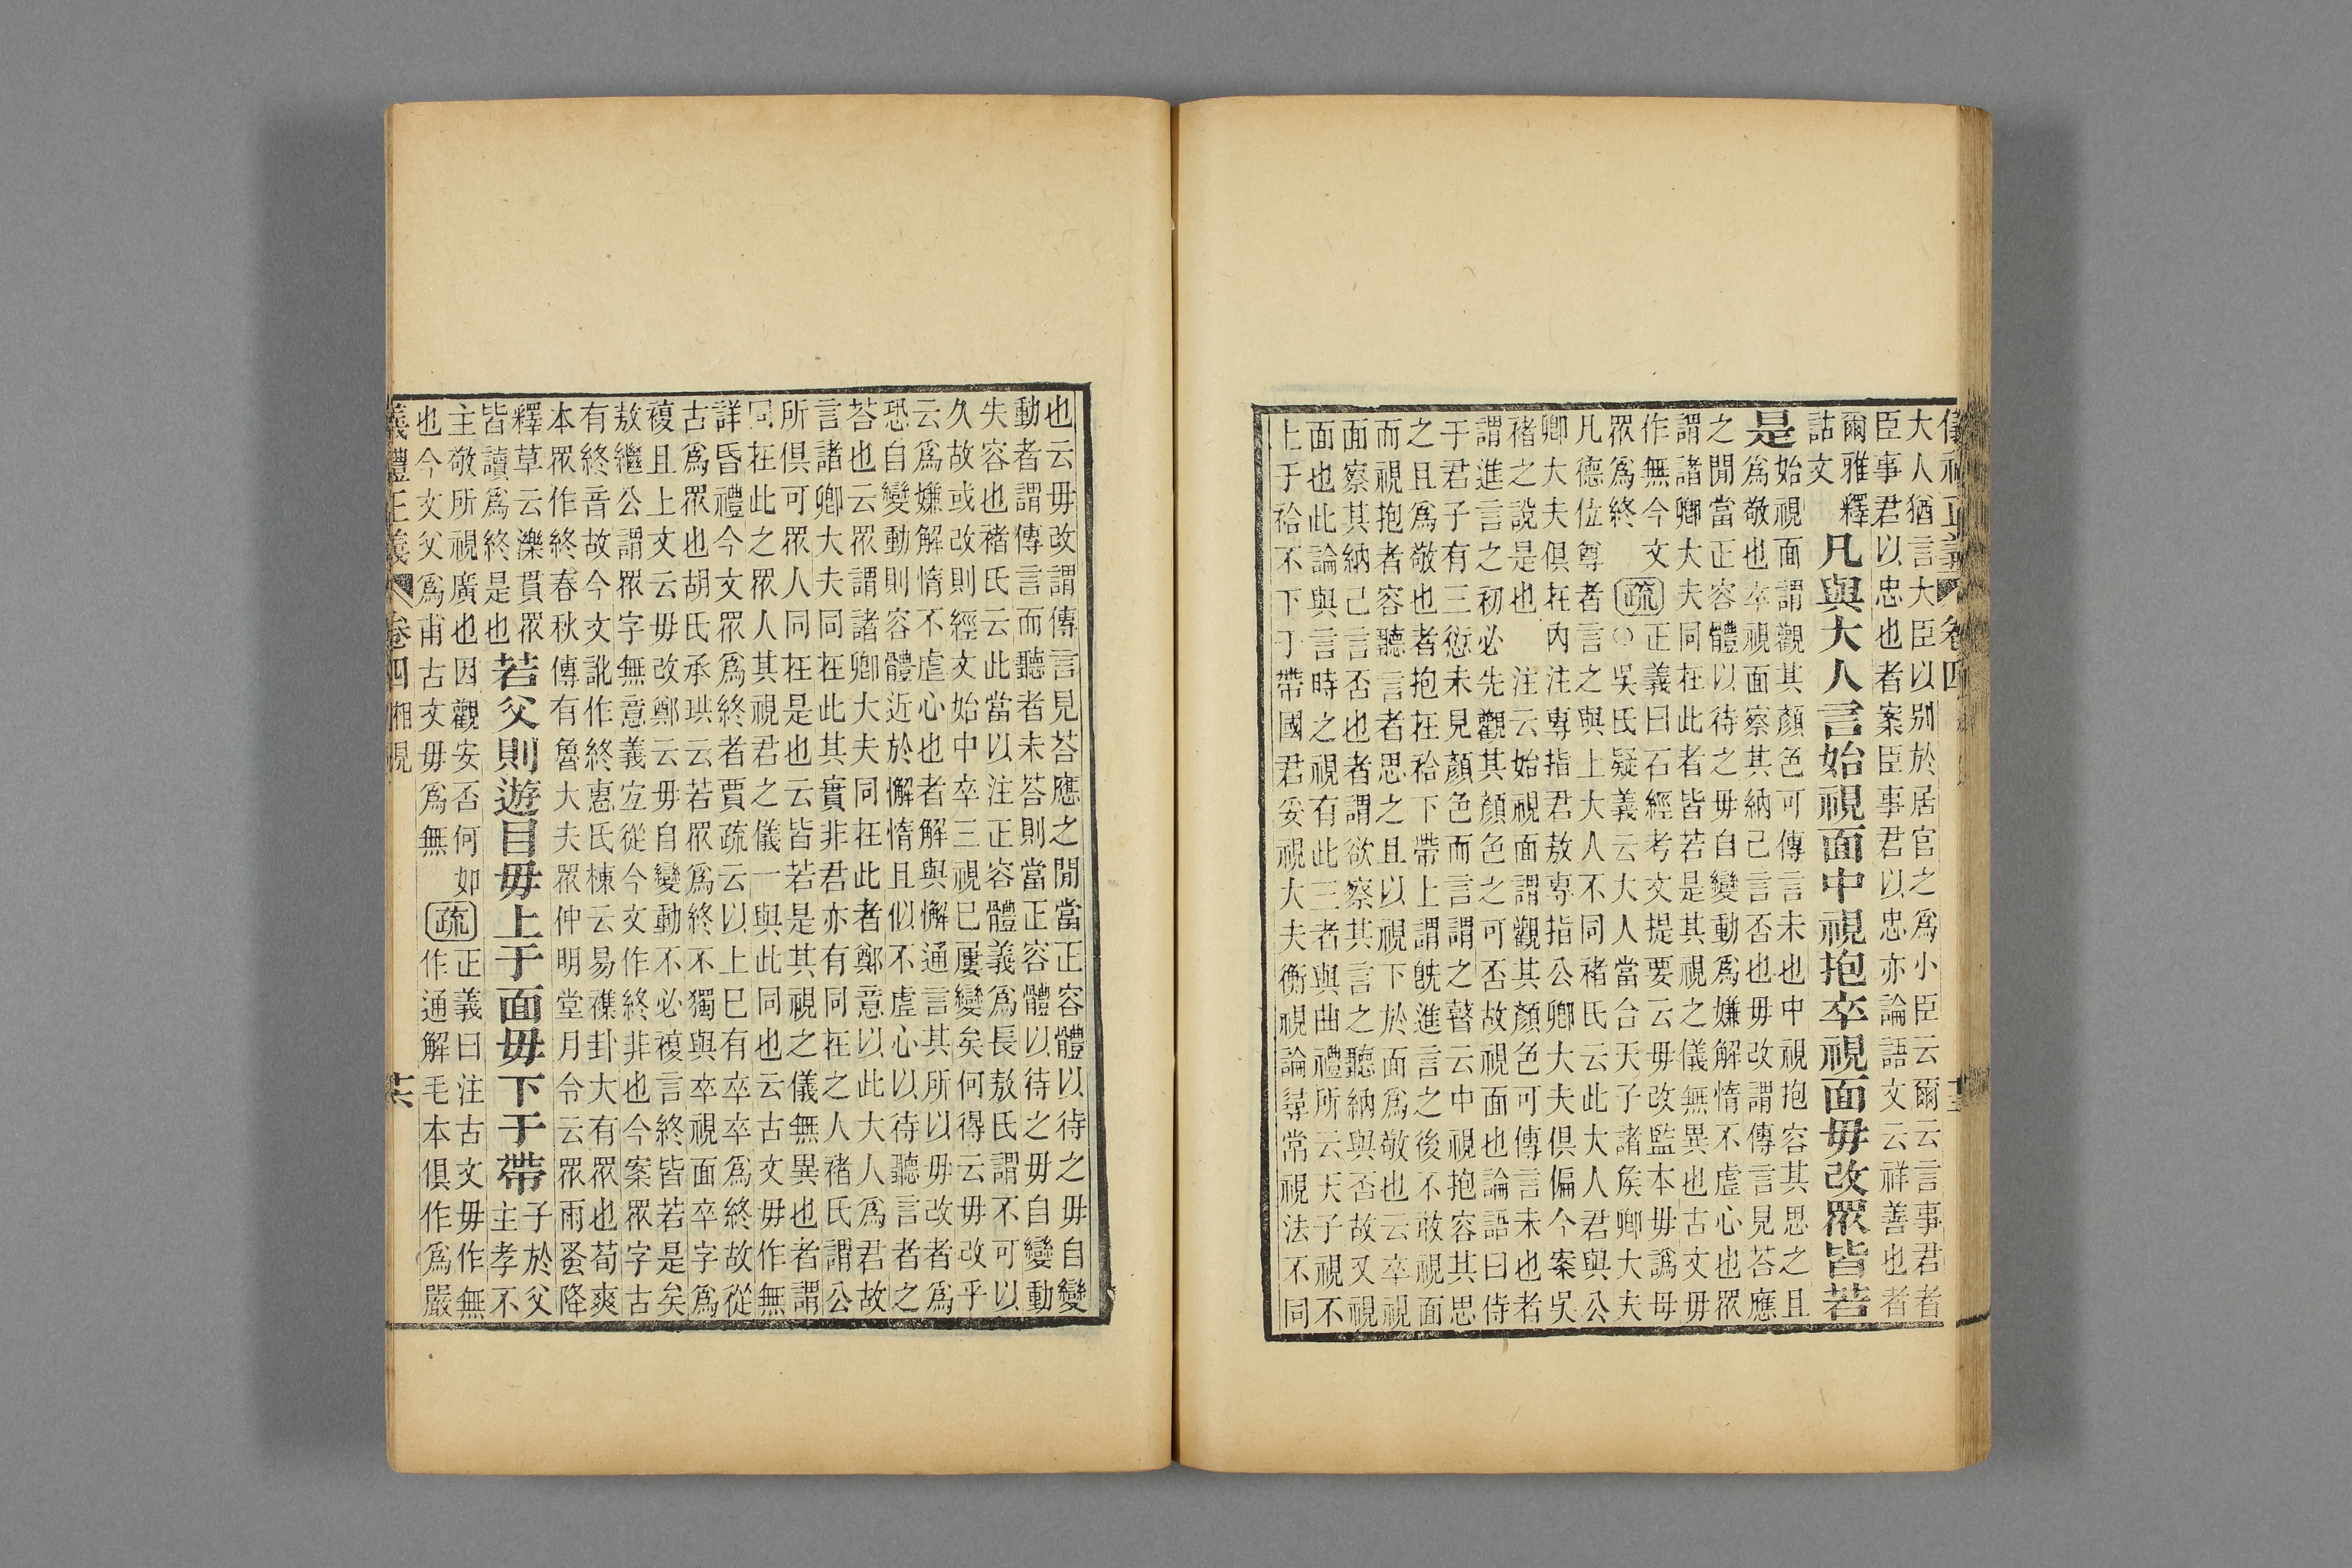 大人猶言大臣以别於居官之爲小臣云爾云言事君者
臣事君以忠也者案臣事君以忠亦論語文云祥善也者
爾雅釋
詁文
凡與大人言始視面中視抱卒視面毋改眾皆若
是
始視面謂觀其顏色可傳言未也中視抱容其思之且
爲敬也卒視面察其納己言否也毋改謂傳言見荅應
之閒當正容體以待之毋自變動爲嫌解惰不虛心也眾
謂諸卿大夫同在此者皆若是其視之儀無異也古文毋
作無今文
眾爲終
疏
正義曰石經考文提要云毋改監本毋譌母
○吳氏疑義云大人當合天子諸侯卿大夫
凡德位尊者言之與上大人不同褚氏云此大人君與公
卿大夫俱在內注專指君敖專指公卿大夫俱偏今案吳
褚之說是也 注云始視面謂觀其顏色可傳言未也者
謂進言之初必先觀其顏色之可否故視面也論語曰侍
于君子有三愆未見顏色而言謂之瞽云中視抱容其思
之且爲敬也者抱在袷下帶上謂旣進言之後不敢視面
而視抱者容聽言者思之且以視下於面爲敬也云卒視
面察其納己言否也者謂欲察其言之聽納與否故又視
面也此論與言時之視有此三者與曲禮所云天子視不
上于袷不下于帶國君妥視大夫衡視論尋常視法不同
也云毋改謂傳言見荅應之閒當正容體以待之毋自變
動者謂傳言而聽者未荅則當正容體以待之毋自變動
失容也褚氏云此當以注正容體義爲長敖氏謂不可以
久故或改則經文始中卒三視已屢變矣何得云毋改乎
云爲嫌解惰不虛心也者解與懈通言其所以毋改者爲
恐自變動則容體近於懈惰且似不虛心以待聽言者之
荅也云眾謂諸卿大夫同在此者鄭意以此大人爲君故
言諸卿大夫同在此其實非君亦有同在之人褚氏謂公
所俱可眾人同在是也云皆若是其視之儀無異也者謂
同在此之眾人其視君之儀一與此同也云古文毋作無
詳昏禮今文眾爲終者賈疏云以上已有卒卒爲終故從
古爲眾也胡氏承珙云若眾爲終不獨與卒視面卒字爲
複且上文云毋改鄭云毋自變動不必複言終皆若是矣
敖繼公謂眾字無意義宐從今文作終非也今案眾字古
有終音故今文訛作終惠氏棟云易襍卦大有眾也荀爽
本眾作終春秋傳有魯大夫眾仲明堂月令云眾雨蚤降
釋草云濼貫眾
皆讀爲終是也
若父則遊目毋上于面毋下于帶
子於父
主孝不
主敬所視廣也因觀安否何如
也今文父爲甫古文毋爲無
疏
正義曰注古文毋作無
作通解毛本俱作爲嚴
卷四